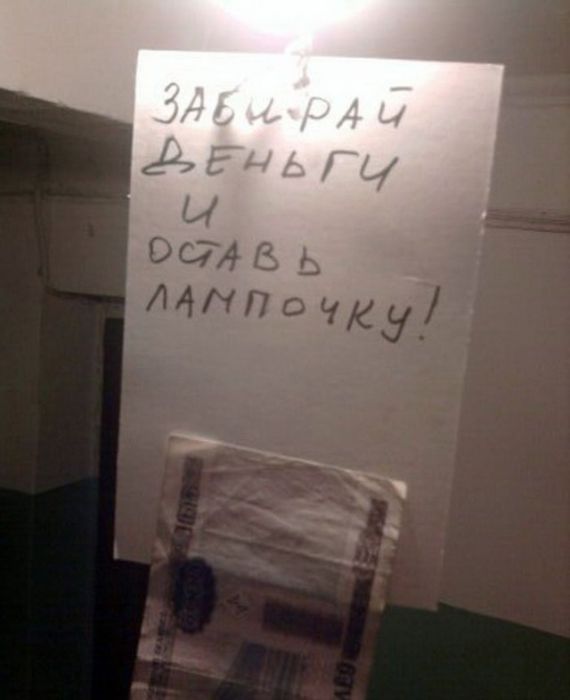 ЗАБИРАЙ
ДЕНЬГИ
И
ОСТАВЬ
ЛАМПОЧКУ!